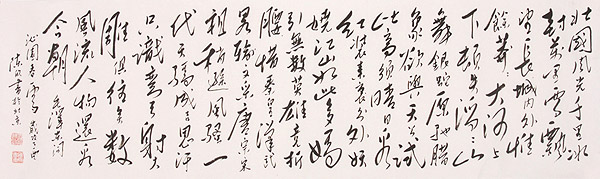 北國風光千里冰
封萬里雪飄
望長城内外惟
餘莽莽大河上
下頓失滔滔山
舞銀蛇原馳臘
象欲與天公試
比高須晴日看
紅裝素裹分外妖
嬈江山如此多嬌
引無數英雄競折
腰惜秦皇漢武
略輸文采唐宗宋
祖稍遜風騷一
代天驕成吉思汗
只識彎弓射大
雕俱往矣數
風流人物還看
今朝
沁園春雪 毛澤東詞
書於北京